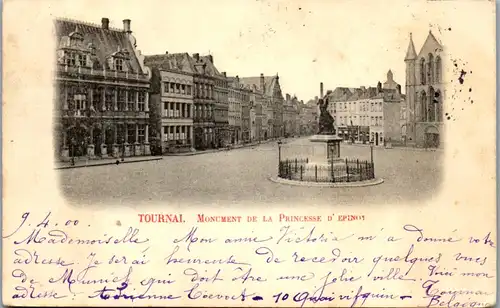 TOURNAI. MONUMENT DE LA PRINCESSE D'EPINOY
9.4.00
Mademoiselle, Mon amie Victoria m'a donné votre
adresse. Je serai heureuse de recevoir quelques vues
de Munich qui doit être une jolie ville. Voici mon
adresse: Adrienne 10 Quai Tournai
Belgique